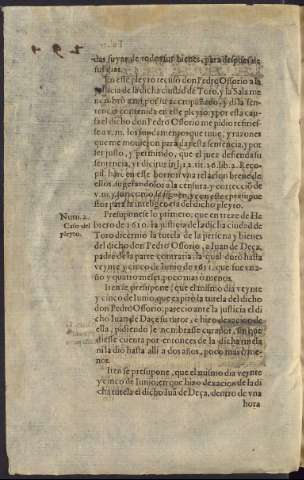 das suyas de todos sus bienes, para despues de
sus dias.
En este pleyto recusò don Pedro Ossorio a la
justicia de la dicha ciudad de Toro, y la Sala me
nombrò a mi por su acompañado, y di la sen-
tencia contenida en este pleyto, y por esta cau-
sa el dicho don Pedro Ossorio me pidio refirief-
se a v.m. los fundamentos que tuue, y razones
que me mouieron para dar esta sentencia, y por
ser justo, y permitido, que el juez defienda su
sentencia,
haré en este borron vna relacion breue de
ellos sugetandolos a la censura, y correccion de
v.m. y
stos para la inteligencia del dicho pleyto.
Num. 2.
Caso del
pleyto.
Presuponese lo primero, que en treze de He
brero de 1610. la justicia de la dicha ciudad de
Toro decernio la tutela de la persona y bienes
del dicho don Pedro Ossorio, a Juan de Deça,
padre de la parte contraria: la qual durò hasta
veynte y cinco de Iunio de 1611. que fue vn a-
ño y quatro meses, poco mas ò menos.
Iten se presupone, que el mismo dia veynte
y cinco de Iunio, que expirò la tutela del dicho
don Pedro Ossorio, parecio ante la justicia el di
cho Iuan de Deça su tutor, e hizo dexacion de
ella, pidiendo le nombrasse curador, sin que
diesse cuenta por entonces de la dicha tutela
ni la dio hasta alli a dos años, poco mas ò me-
nos.
Iten se presupone, que el mismo dia veynte
y cinco de Iunio, en que hizo dexacion de la di
cha tutela el dicho Iuã de Deça, dentro de vna
hora